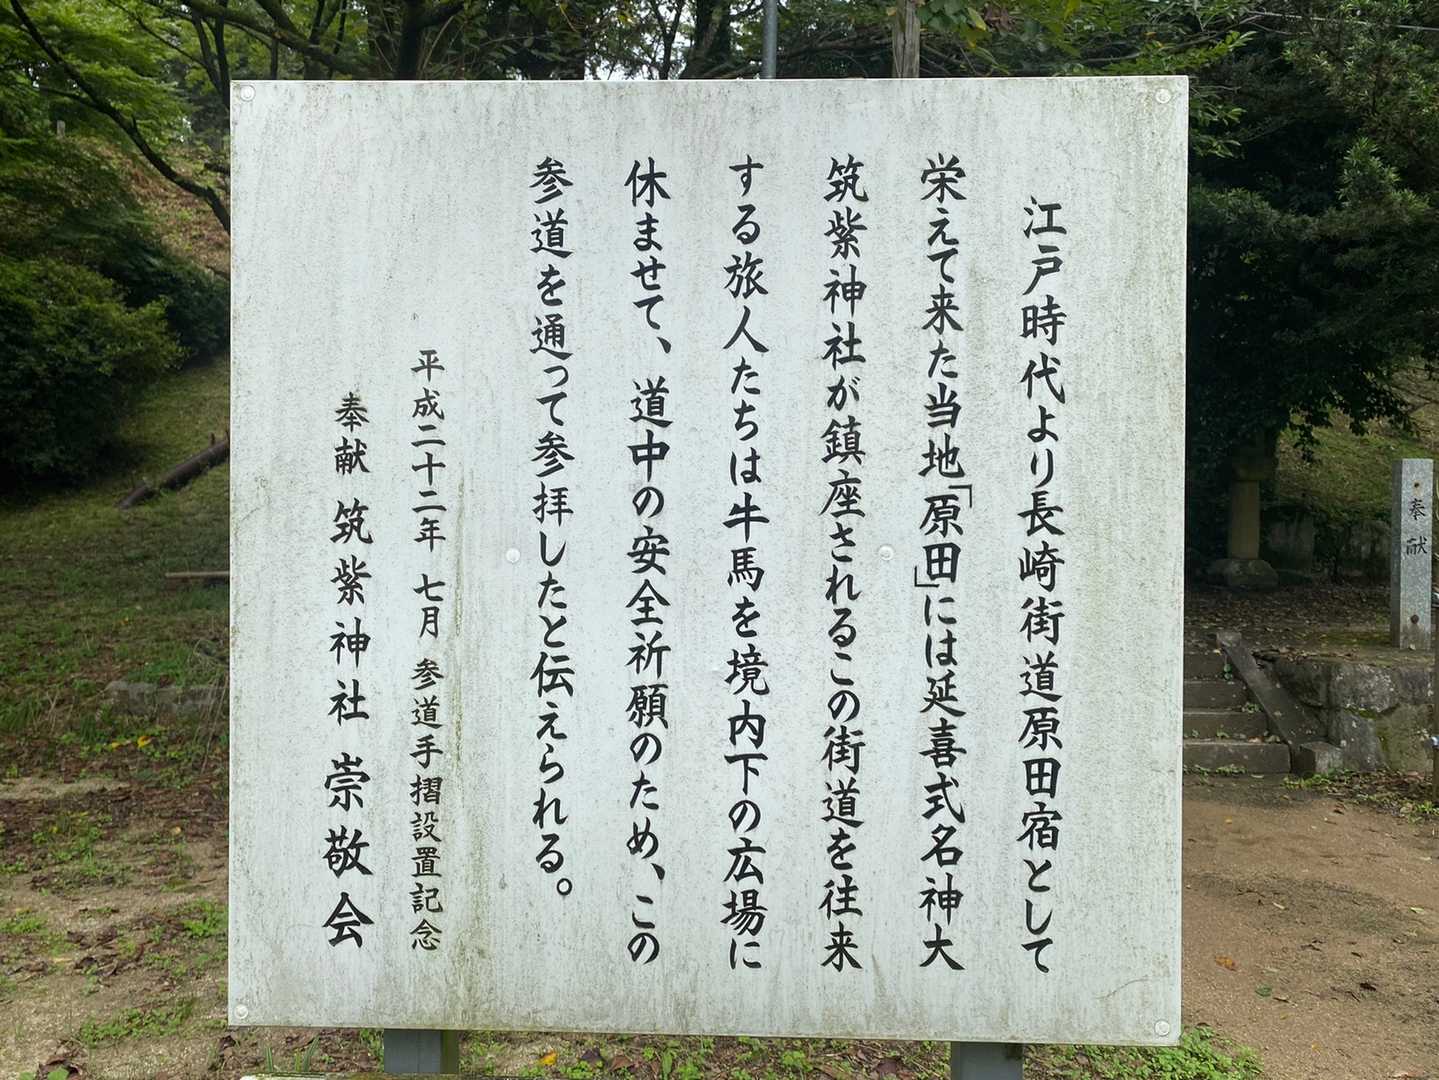 江戸時代より長崎街道原田宿として
栄えて来た当地「原田」には延喜式名神大
筑紫神社が鎮座されるこの街道を往来
する旅人たちは牛馬を境内下の広場に
休ませて、道中の安全祈願のため、この
参道を通って参拝したと伝えられる。
平成二十二年 七月 参道手摺設置記念
奉献 筑紫神社 崇敬会
奉献